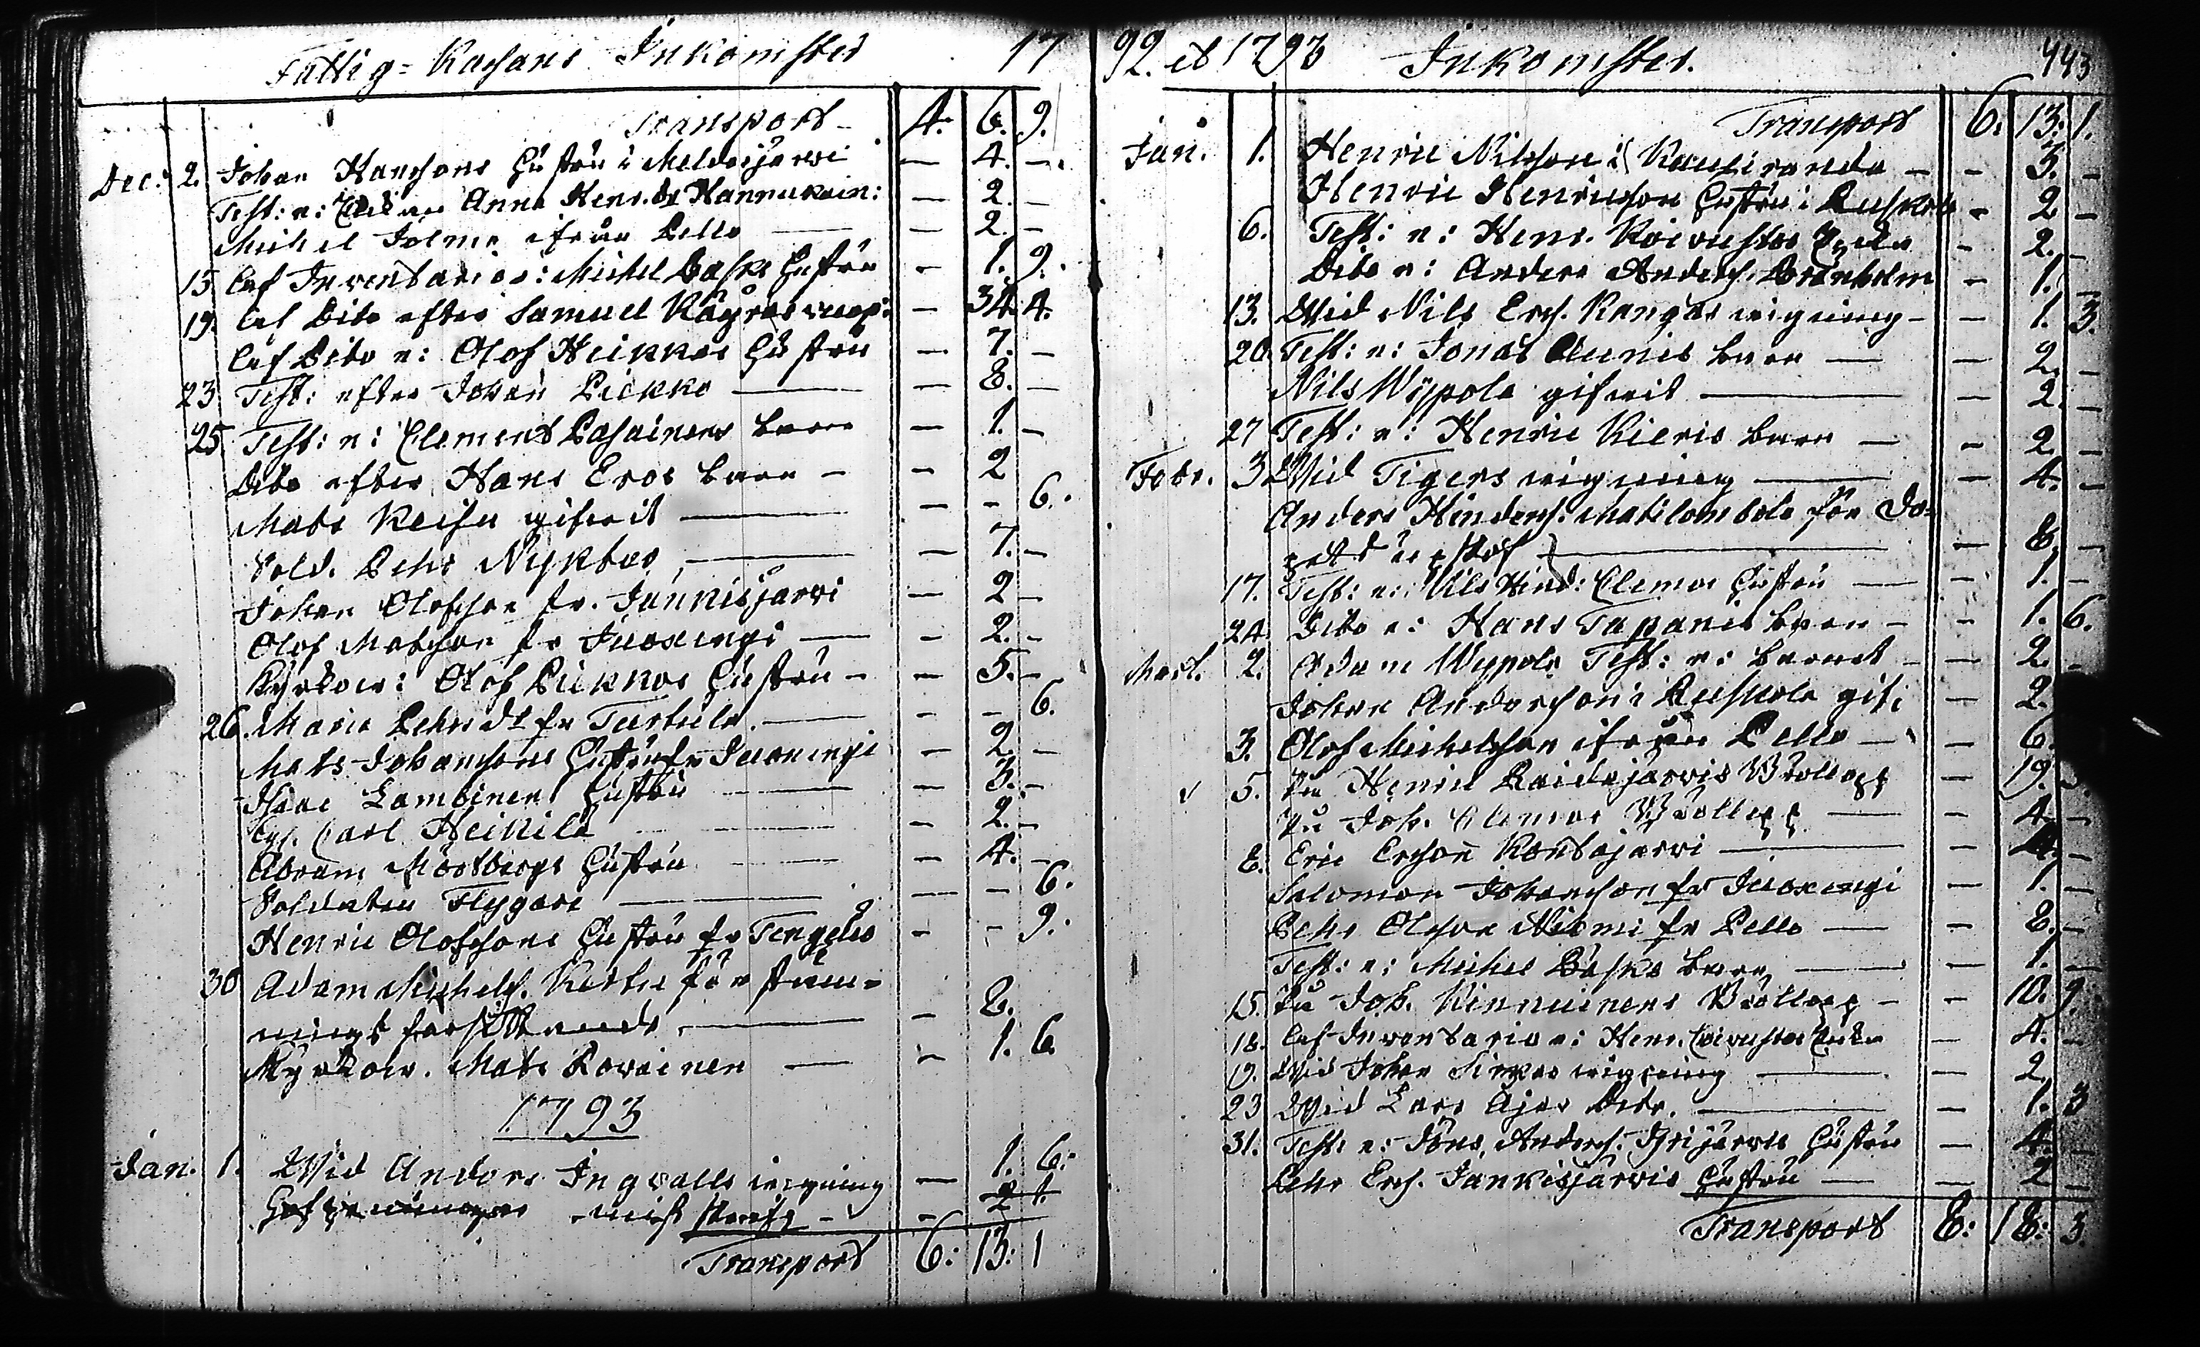 Fattig=Kassans Inkomster 17
Transport 4. 6. 9.
Dec: 2. Johan Hanssons hustru i Meldosjärvi — 4. —
Test: e: Enkan Anna Henr. dr Hannukain: — 2. —
Michel Jolma ifrån Pello — 2. —
15. Af Inventarie e: Michel Basks hustru — 1. 9.
19. Af Dito efter Samuel — 34. 4.
Af Dito e: Olof Heikkas hustru — 7. —
23. Test: efter Johan Piekko — 8. —
25. Test: e: Clement Pasainens barn — 1. —
Dito efter Hans Eros barn — 2
Mats Keisu gifwit — — 6.
Sold. Pehr Nyktas — 7. —
Johan Olofsson fr. Jänkisjärvi — 2 —
Olof Matsson fr Juoxengi — 2. —
Kyrkow: Olof Piekkos hustru — 5. —
26. Maria Pehrsdr fr Turtula — — 6.
Mats Johanssons hustru fr Juoxengi — 2. —
Isaac Lambinens hustru — 3. —
Carl Heikilä — 2. —
Abram Mörtbergs hustru — 4. —
Soldaten Flygare — — 6.
Henric Olofssons hustru fr Tengeliö — — 9.
30 Adam Michelss. för stäm=
nings försittande — 8.
Kyrkow. Mats Rowainen — 1. 6.
1793
Jan. 1. Wid Anders Ingwalls wigning — 1. 6.
— 2 1.
Transport 6: 13: 1
92. et 1793 Inkomster. 443
Transport 6: 13: 1.
Jan. 1. Henric Nilsson i Kauliranda — 3. —
Henric Henricsson hustru i Ruskola — 2 —
6. Test: e: Henr. Koivistos Enka — 2. —
Dito e: Anders Anderss. — 1. —
13. Wid Nils Erss. Kangas wigning — 1. 3.
20. Test: e: Jonas Aunes barn — 2. —
Nils Wypola gifwit — 2. —
27 Test: e: Henric Kieris barn — 2. —
Febr. 3. Wid Tigers wigning — 4. —
Anders Hinderss. Matilombolo för Do=
— 8. —
17. Test: e: Nils Hind: Clemos hustru — 1. —
24. Dito e: Hans Tapanis barn — 1. 6.
Mart. 2. Adam Wypola Test: e: barnet — 2. —
Johan Andersson i Ruskola gif: — 2.
3. Olof Michelsson ifrån Pello — 6.
5. På Henric Raidajärvis Bröllopp — 19. 3.
På Joh. Clemos Bröllopp — 4. —
8. Eric Ersson Kontojärvi — —
Salomon Johansson fr Juoxengi — 1. —
Pehr Olsson Niemi fr Pello — 8. —
Test: e: Michel Basks barn — 1. —
15. På Joh. Kinnuinens Bröllopp — 10. 9.
18. Af Inventarie e: Henr. Koivistos Enka — 4. —
19. Wid Johan Sirkas wigning — 2.
23 Wid Lars Ajas Dito. — 1. 3
31. Test: e: Jöns Anderss. hustru — 4. —
Pehr Erss. Jänkisjärvis hustru — 2 —
Transport 8: 18: 3.